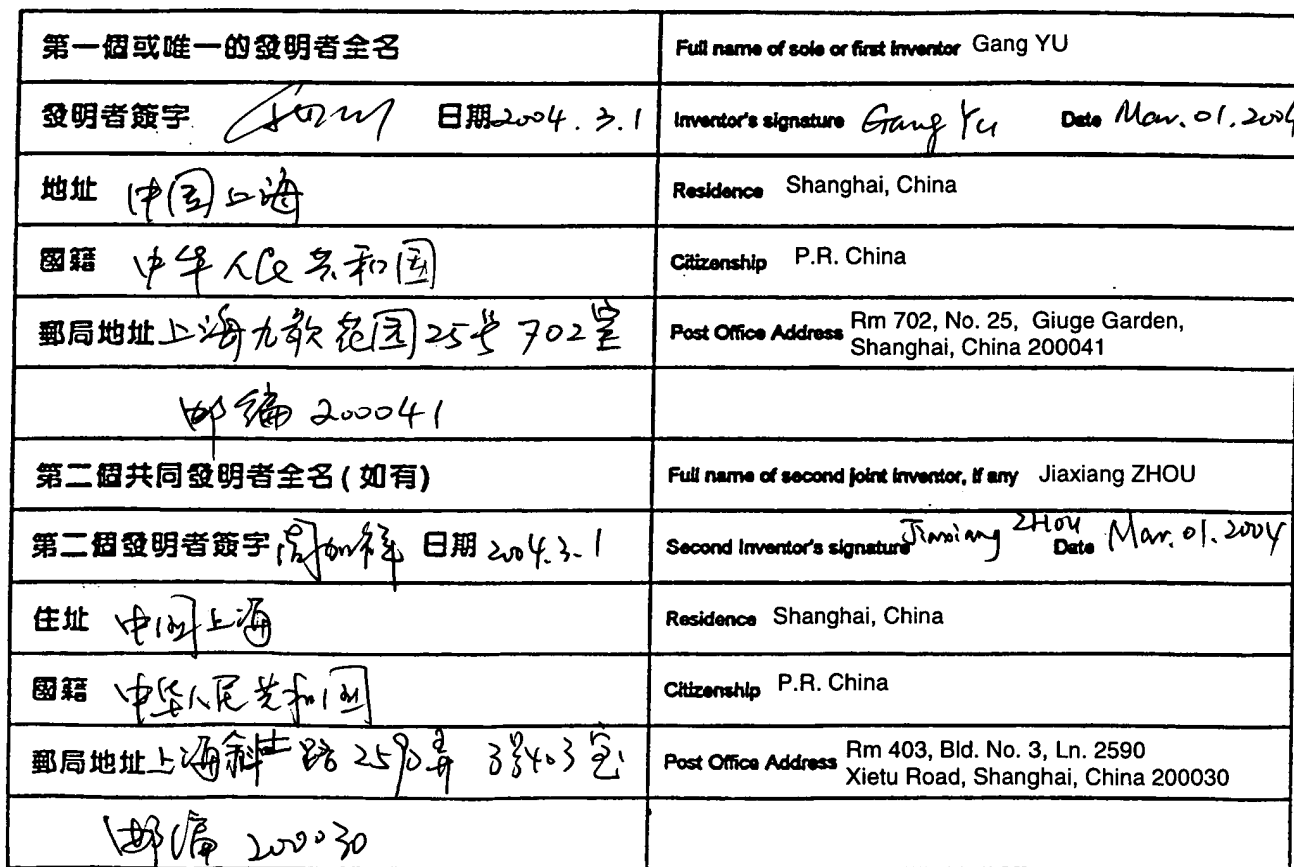 第一個或唯一的發明者全名
Full name of sole or first inventor Gang YU
發明者簽字 日期2004.3.1
Inventor's signature Gang Yu Date Mar.01.2004
地址 中国上海
Residence Shanghai, China
國籍 中华人民共和国
Citizenship P.R. China
郵局地址 上海九歌花园25号702室
Post Office Address Rm 702, No. 25, Giuge Garden,
Shanghai, China 200041
邮编 200041
第二個共同發明者全名(如有)
Full name of second joint inventor, if any Jiaxiang ZHOU
第二個發明者簽字 周加祥 日期 2004.3.1
Second Inventor's signature Jiaxiang ZHOU Date Mar.01.2004
住址 中国上海
Residence Shanghai, China
國籍 中华人民共和国
Citizenship P.R. China
郵局地址 上海斜土路2590弄3号403室
Post Office Address Rm 403, Bld. No. 3, Ln. 2590
Xietu Road, Shanghai, China 200030
邮编 200030